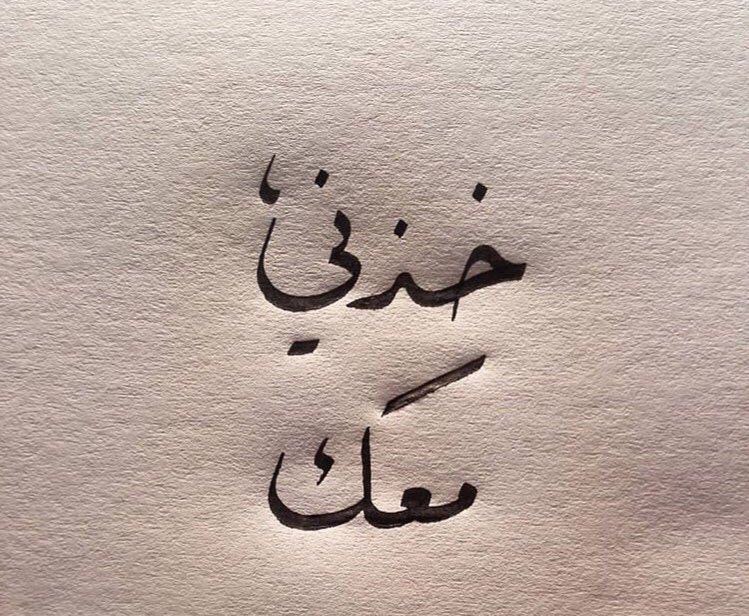 خذني،
معك